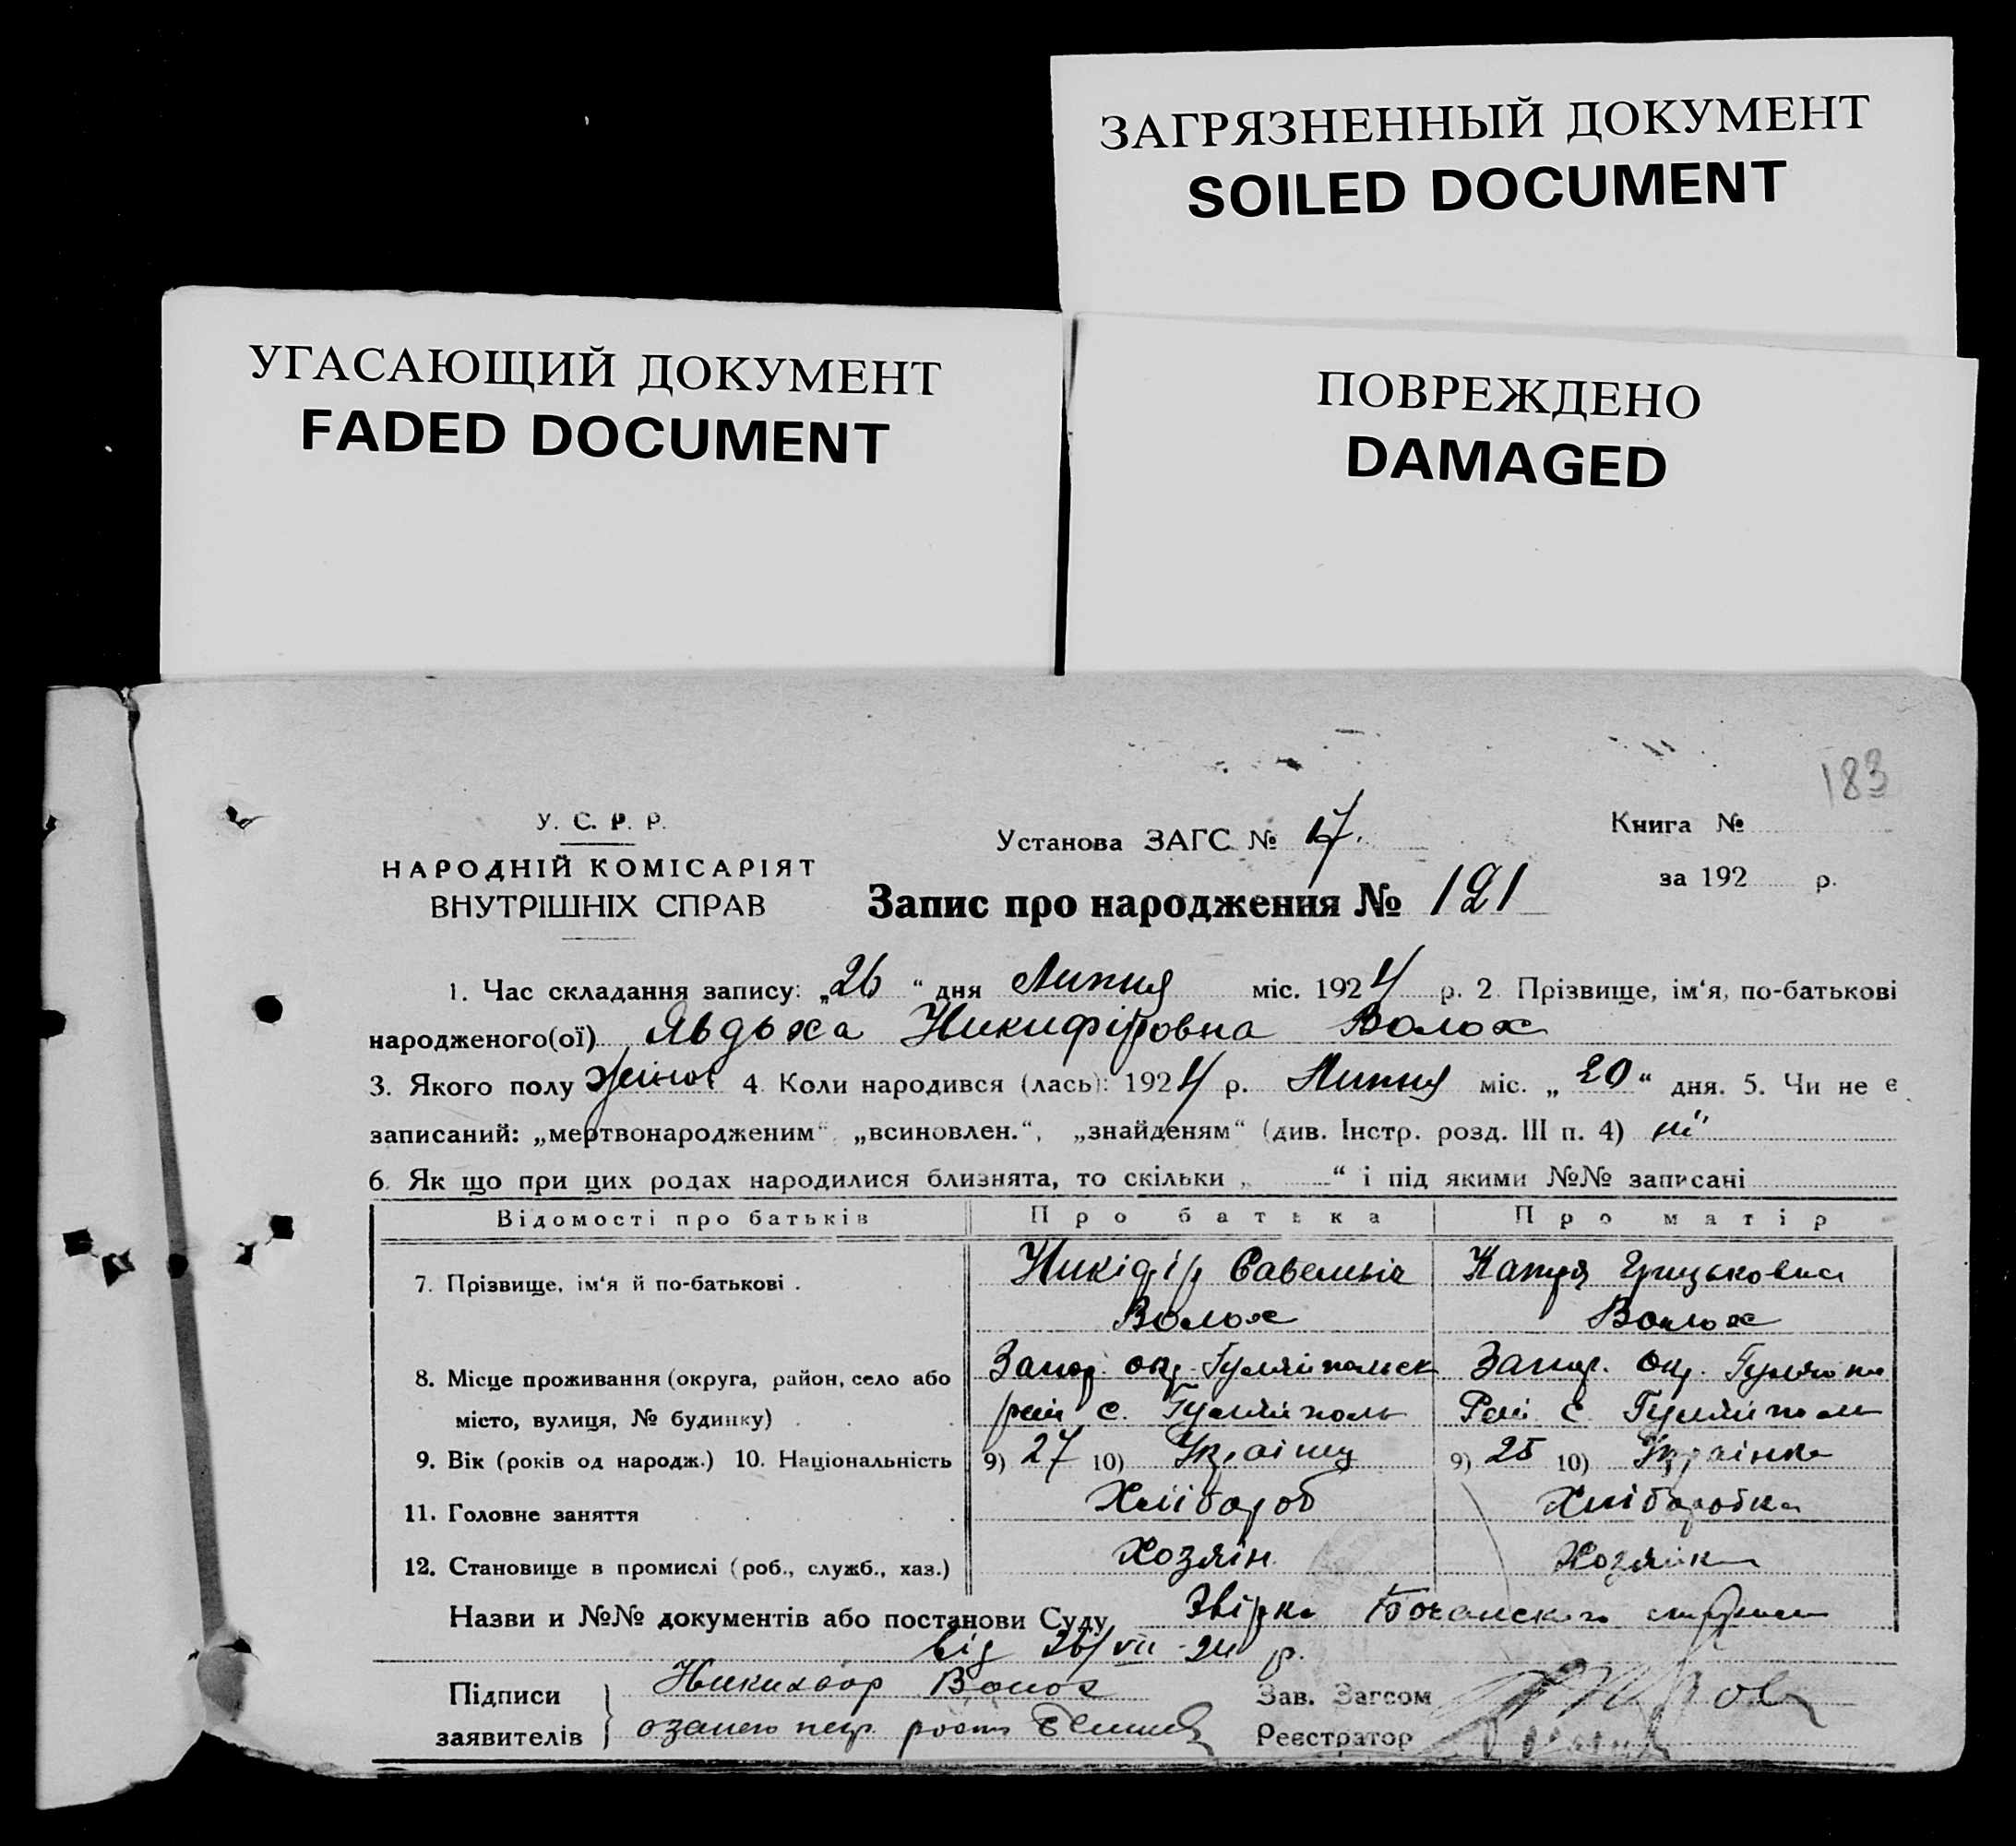 ЗАГРЯЗНЕННЫЙ ДОКУМЕНТ
SOILED DOCUMENT
УГАСАЮЩИЙ ДОКУМЕНТ
FADED DOCUMENT
ПОВРЕЖДЕНО
DAMAGED
183
У. С. Р. Р.
НАРОДНІЙ КОМІСАРІЯТ
ВНУТРІШНІХ СПРАВ
Установа ЗАГС № 17.
Запис про народження № 121
Книга №
за 192 р.
1. Час складання запису: „26“ дня Липня міс. 1924 р. 2. Прізвище, ім‘я, по-батькові
народженого(ої) Явдоха Никифіровна Волох
3. Якого полу жіноч 4. Коли народився (лась): 1924 р. Липня міс. „20“ дня. 5. Чи не є
записаний: „мертвонародженим“, „всиновлен.“, „знайденям“ (див. Інстр. розд. III п. 4) ні
6. Як що при цих родах народилися близнята, то скільки „ “ і під якими №№ записані
Відомості про батьків Про батька Про матір
7. Прізвище, ім‘я й по-батькові . Никіфір Савельвіч Катря Грицьковна
Волох Волох
8. Місце проживання (округа, район, село або Запор. окр. Гуляйпольск Запор. Окр. Гуляйпо
місто, вулиця, № будинку) рай с. Гуляйполь Рай с. Гуляйполь
9. Вік (років од народж.) 10. Національність 9) 27 10) Українц 9) 25 10) Українка
11. Головне заняття Хлібороб Хліборобка
12. Становище в промислі (роб., служб., хаз.) Хозяін Хозяйка
Назви и №№ документів або постанови Суду Звірка
від 26/VII-24 р.
Підписи Никихвор Волох Зав. Загсом
заявителів Реєстратор